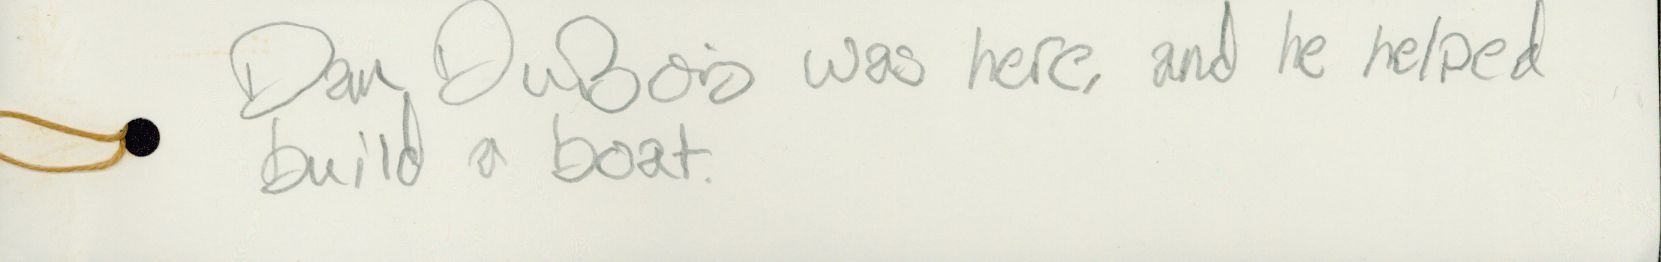 Dan DuBois was here, and he helped
build a boat.